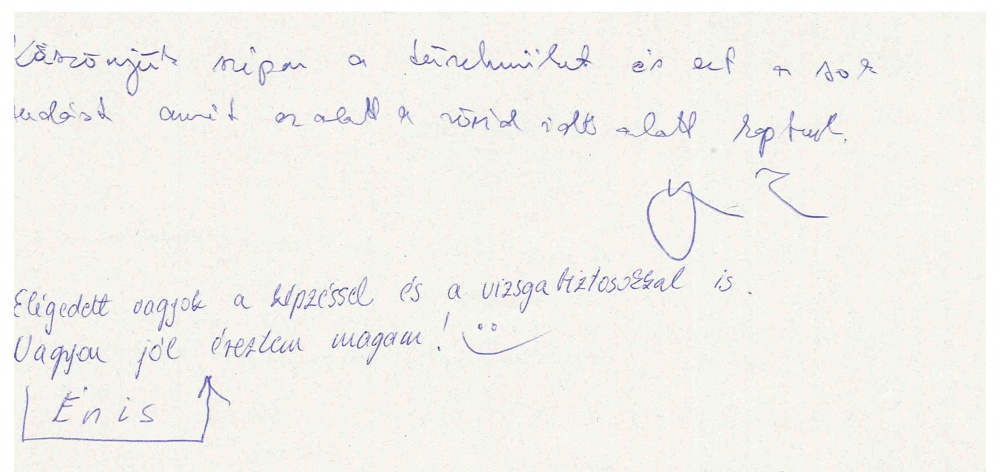 Köszönjük szépen a türelmüket és ezt a sok
tudást amit ez alatt a rövid idő alatt kaptunk.
Elégedett vagyok a képzéssel és a vizsgabiztosokkal is.
Nagyon jól éreztem magam!
Én is